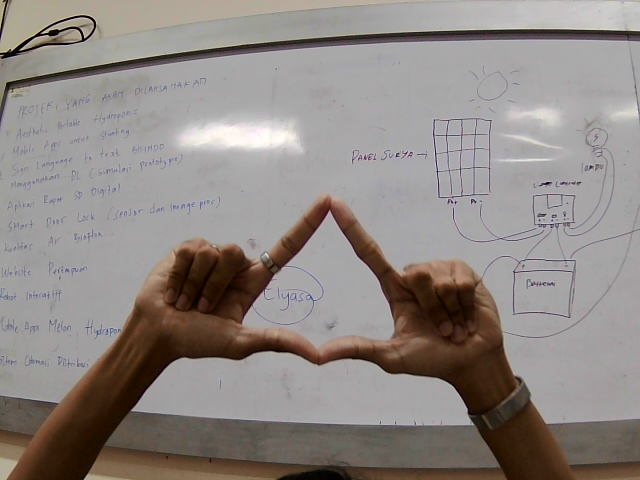 PROJEK YANG AKAN DILAKSANAKAN
Aesthetic Portable Hydroponic
Mobile Apps untuk Stunting
Sign Language to text BISINDO
Menggunakan DL (Simulasi prototype)
Aplikasi Rapor SD Digital
Smart Door Lock (sensor dan image proc)
Kualitas Air
Website
Robot Interaktif
Mobile Apps Melon Hydropon
Distribusi
Elyasa
PANEL SURYA →
LAMPU